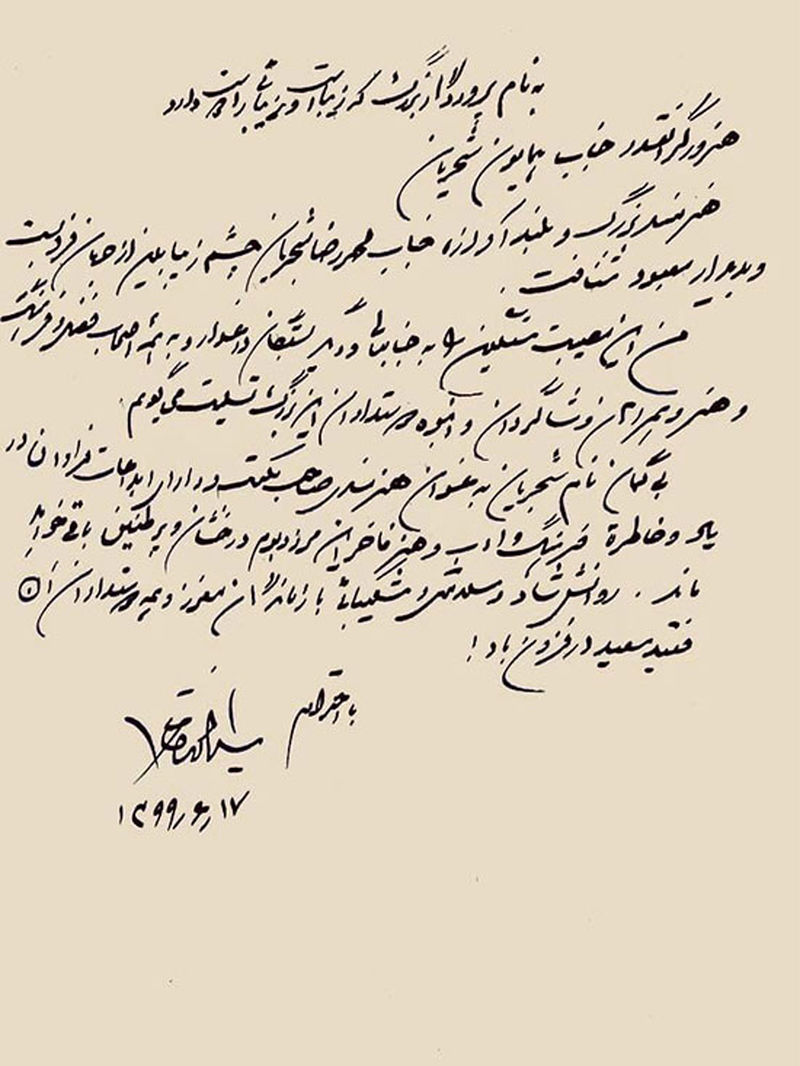 به نام پروردگار بزرگ که زیباست و زیبائی را دوست دارد
هنرور گرانقدر جناب همایون شجریان
هنرمند بزرگ و بلندآوازه جناب محمدرضا شجریان چشم زیبابین از جهان فرو بست
و بدیدار معبود شتافت.
من این مصیبت سنگین را به جنابعالی و دیگر بستگان داغدار و به همه اصحاب فضل و فرهنگ
و هنر و همراهان و شاگردان و انبوه دوستداران این بزرگ تسلیت می‌گویم.
بی گمان نام شجریان به عنوان هنرمندی صاحب سبک و دارای ابداعات فراوان در
یاد و خاطرهٔ فرهنگ و ادب و هنر فاخر این مرز و بوم درخشان و پر طنین باقی خواهد
ماند. روانش شاد و سلامتی و شکیبائی بازماندگان معزز و همه دوستداران آن
فقید سعید در فزون باد!
با احترام
۱۳۹۹٫۶٫۱۷